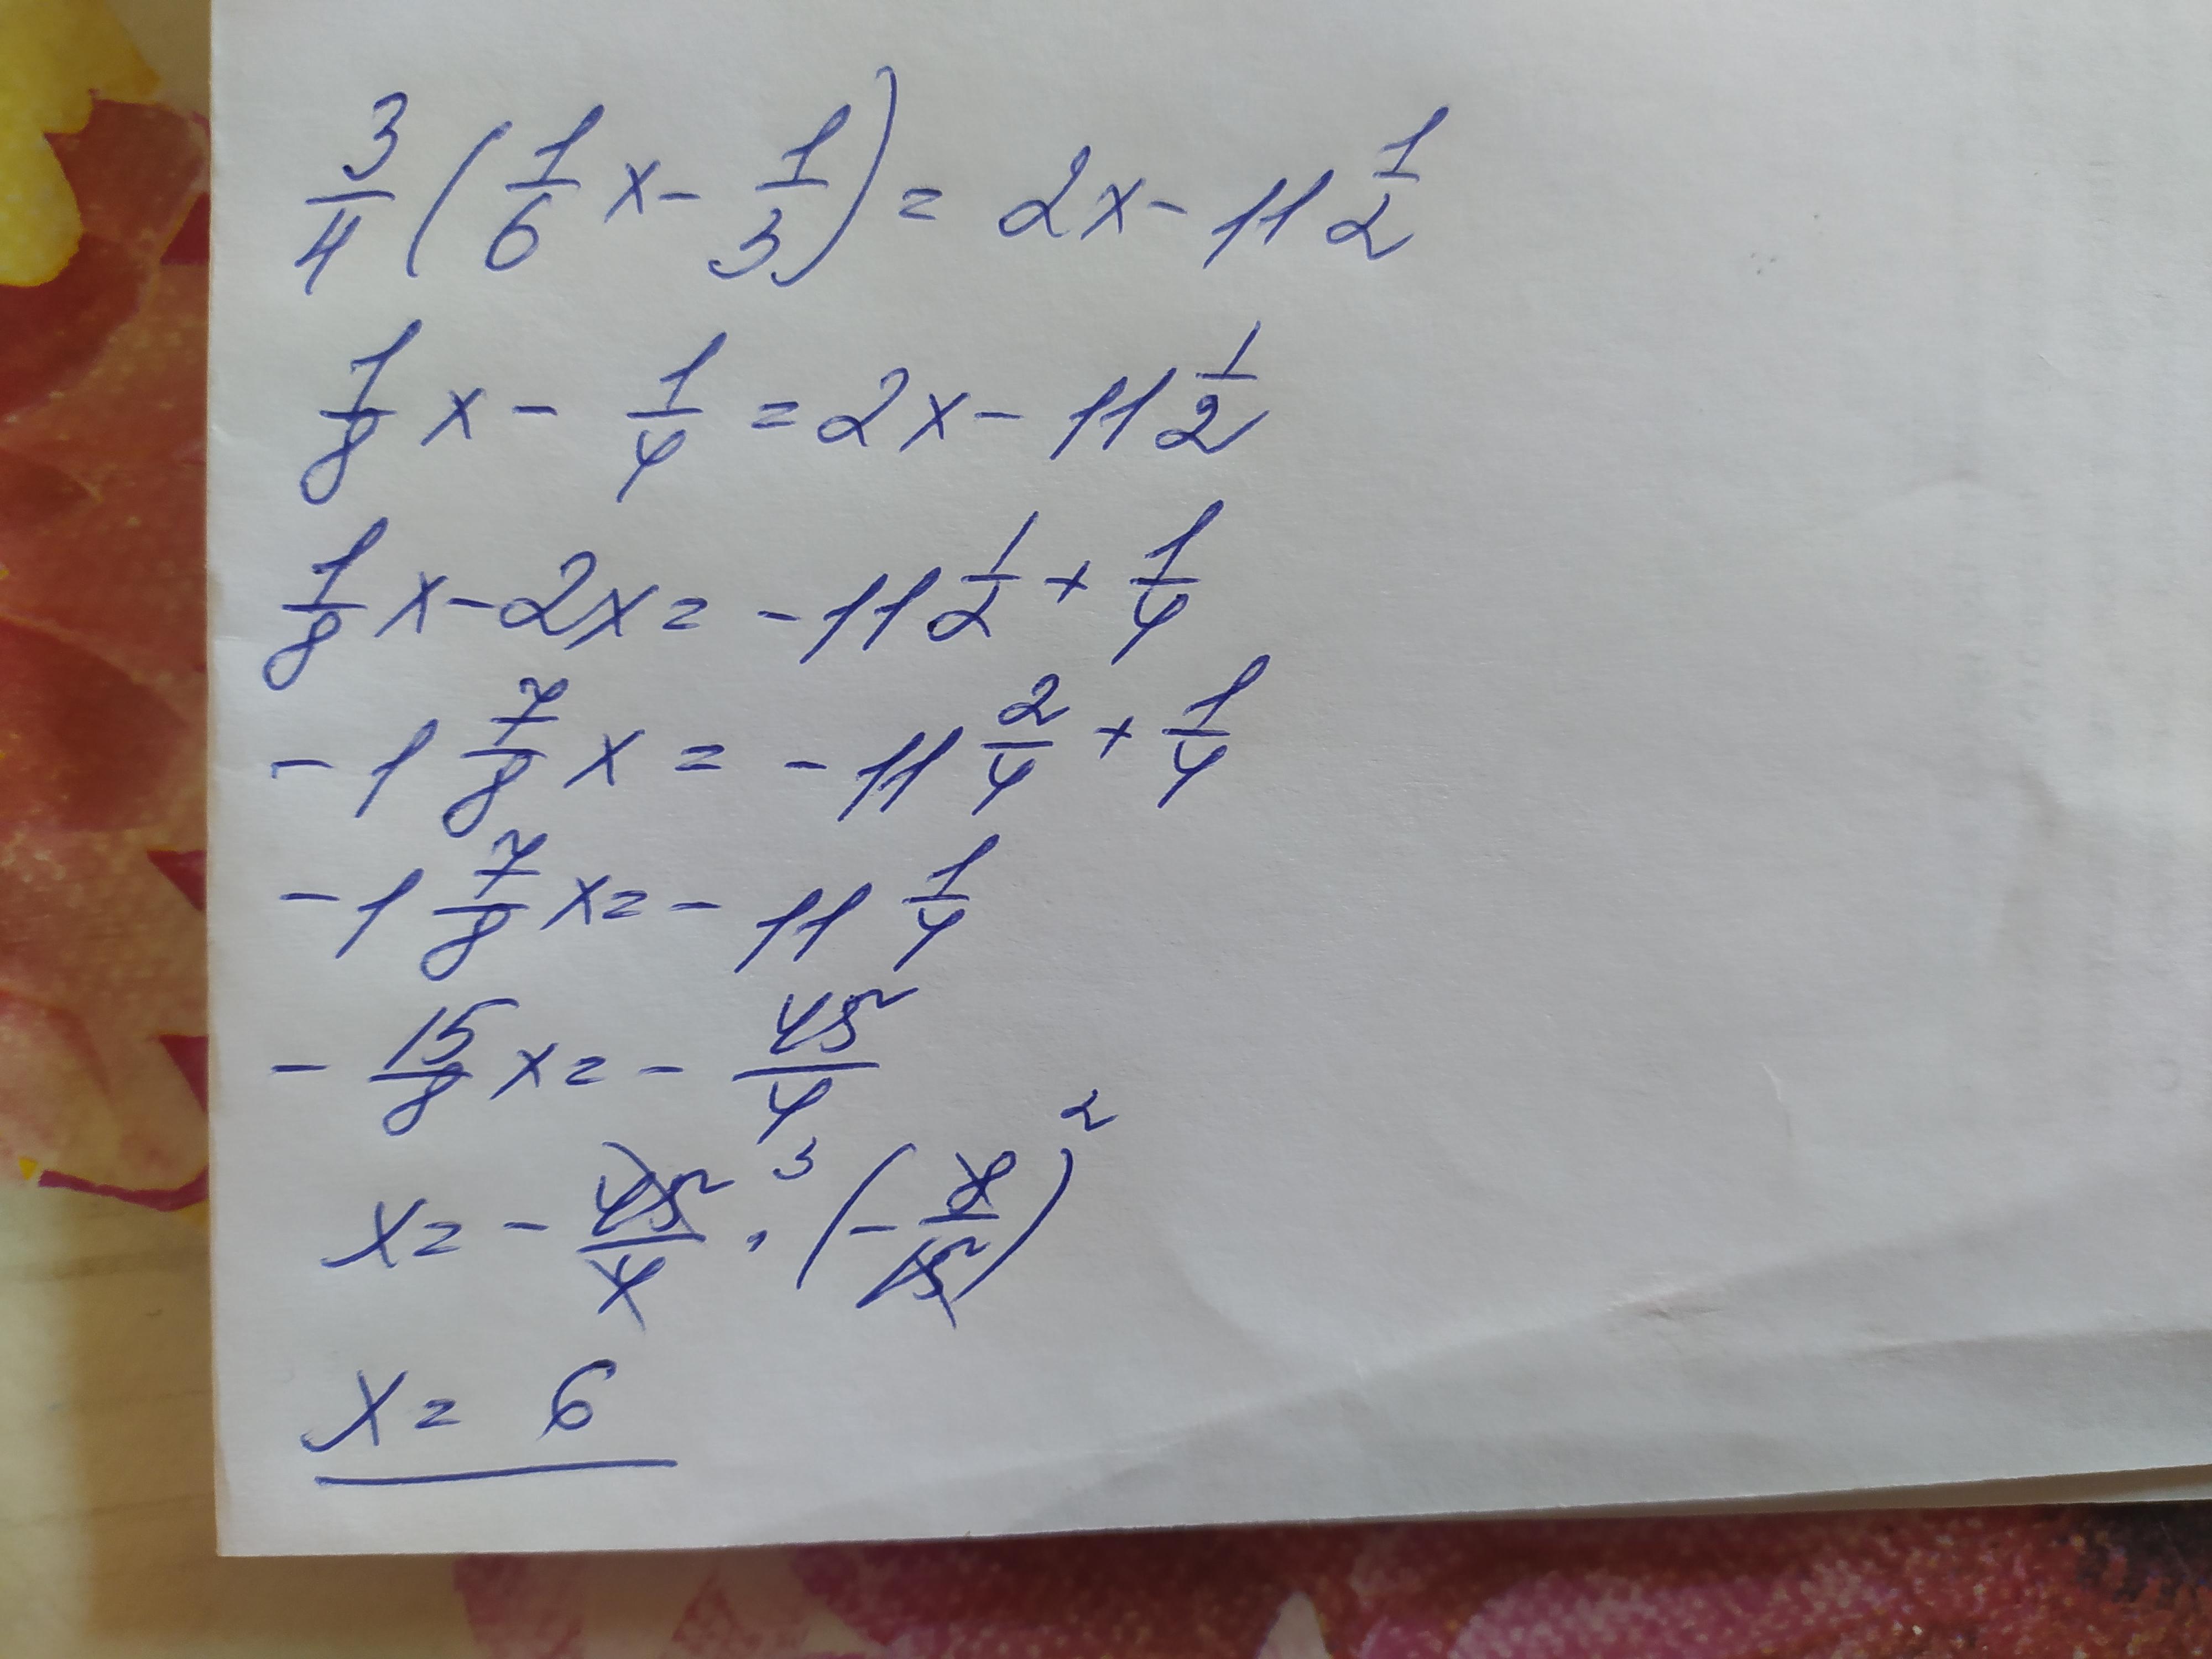 3/4 (1/6 x - 1/3) = 2x - 11 1/2
1/8 x - 1/4 = 2x - 11 1/2
1/8 x - 2x = - 11 1/2 + 1/4
- 1 7/8 x = - 11 2/4 + 1/4
- 1 7/8 x = - 11 1/4
- 15/8 x = - 45/4
x = - 45/4 3 · (- 8/15) 2
x = 6